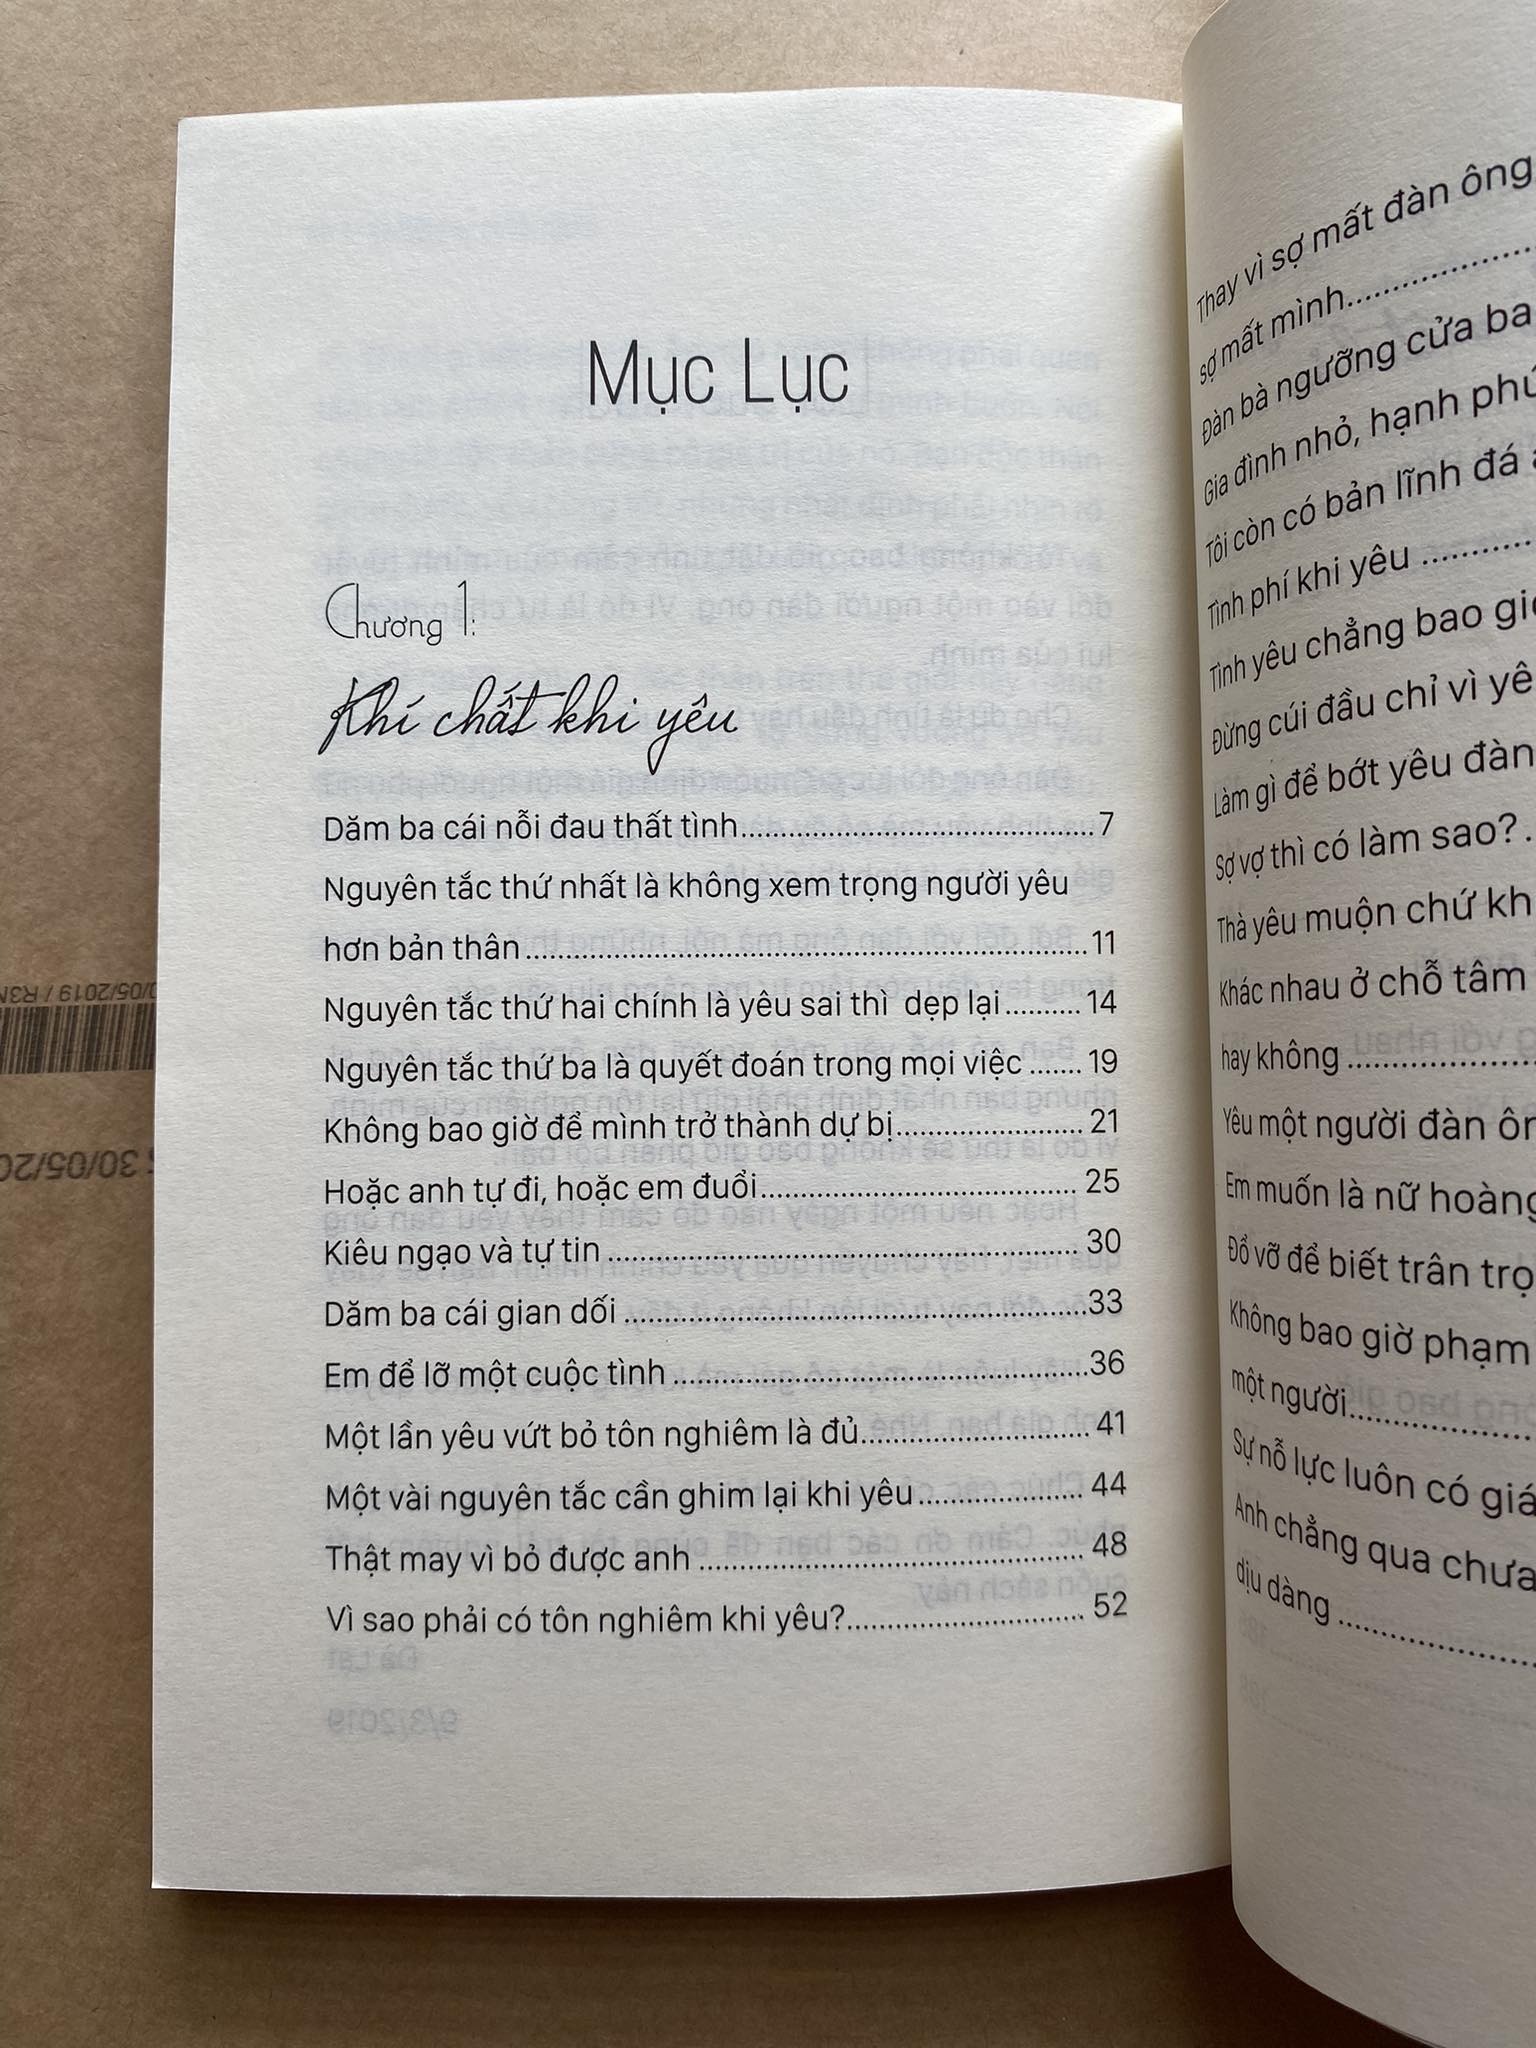 Mục Lục
Chương 1:
Khí chất khi yêu
Dăm ba cái nỗi đau thất tình..........7
Nguyên tắc thứ nhất là không xem trọng người yêu
hơn bản thân..........11
Nguyên tắc thứ hai chính là yêu sai thì dẹp lại..........14
Nguyên tắc thứ ba là quyết đoán trong mọi việc.......19
Không bao giờ để mình trở thành dự bị..........21
Hoặc anh tự đi, hoặc em đuổi..........25
Kiêu ngạo và tự tin..........30
Dăm ba cái gian dối..........33
Em để lỡ một cuộc tình..........36
Một lần yêu vứt bỏ tôn nghiêm là đủ..........41
Một vài nguyên tắc cần ghim lại khi yêu..........44
Thật may vì bỏ được anh..........48
Vì sao phải có tôn nghiêm khi yêu?..........52
Thay vì sợ mất đàn ông
sợ mất mình..........
Đàn bà ngưỡng cửa ba
Gia đình nhỏ, hạnh phú
Tôi còn có bản lĩnh đá
Tình phí khi yêu..........
Tình yêu chẳng bao giờ
Đừng cúi đầu chỉ vì yê
Làm gì để bớt yêu đàn
Sợ vợ thì có làm sao?
Thà yêu muộn chứ kh
Khác nhau ở chỗ tâm
hay không..........
Yêu một người đàn ôn
Em muốn là nữ hoàng
Đổ vỡ để biết trân trọ
Không bao giờ phạm
một người..........
Sự nỗ lực luôn có giá
Anh chẳng qua chưa
dịu dàng..........